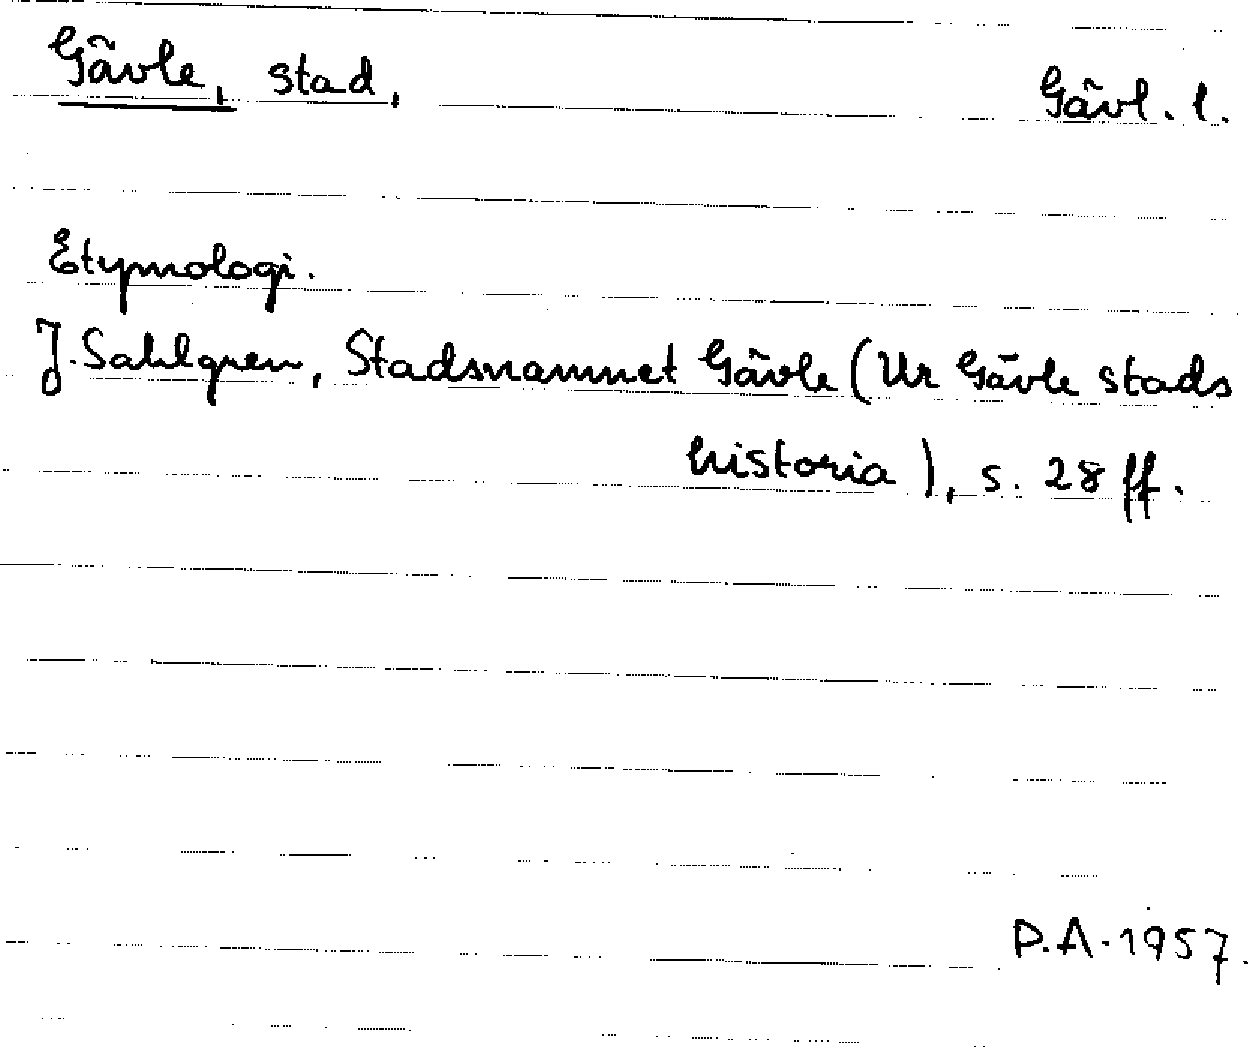 Gävle, stad, Gävl. l.
Etymologi.
J. Sahlgren, Stadsnamnet Gävle (Ur Gävle stads
historia), s. 28 ff.
P.A. 1957.